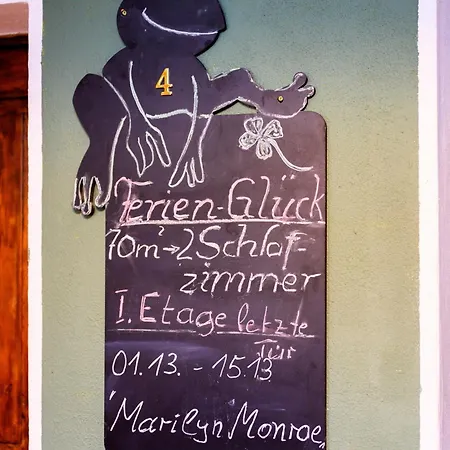 4
Ferien-Glück
70m²→2Schlaf-
zimmer
I. Etage letzte
Tür
01.13. - 15.13
"Marilyn Monroe"